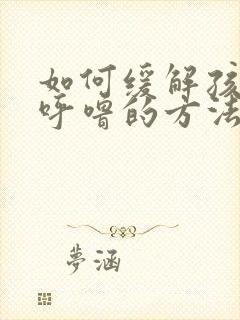 如何缓解孩
呼噜的方法
夢涵